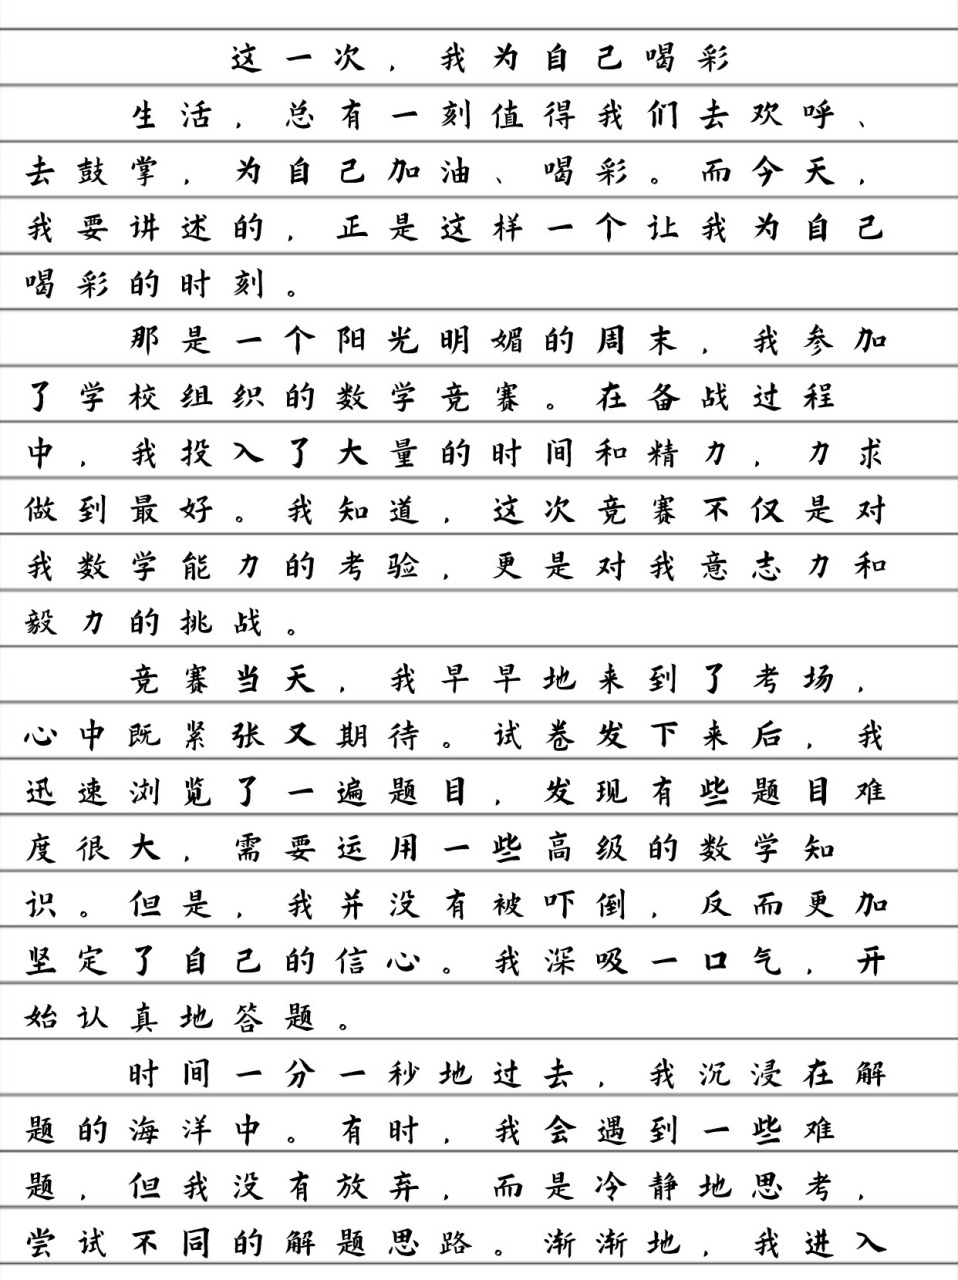 这一次，我为自己喝彩
生活，总有一刻值得我们去欢呼、
去鼓掌，为自己加油、喝彩。而今天，
我要讲述的，正是这样一个让我为自己
喝彩的时刻。
那是一个阳光明媚的周末，我参加
了学校组织的数学竞赛。在备战过程
中，我投入了大量的时间和精力，力求
做到最好。我知道，这次竞赛不仅是对
我数学能力的考验，更是对我意志力和
毅力的挑战。
竞赛当天，我早早地来到了考场，
心中既紧张又期待。试卷发下来后，我
迅速浏览了一遍题目，发现有些题目难
度很大，需要运用一些高级的数学知
识。但是，我并没有被吓倒，反而更加
坚定了自己的信心。我深吸一口气，开
始认真地答题。
时间一分一秒地过去，我沉浸在解
题的海洋中。有时，我会遇到一些难
题，但我没有放弃，而是冷静地思考，
尝试不同的解题思路。渐渐地，我进入